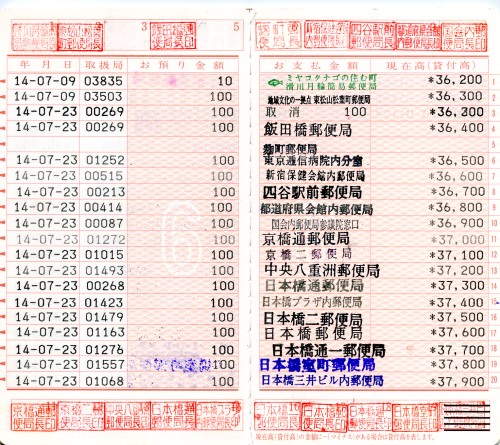 年月日 取扱局 お預り金額 お支払金額 現在高(貸付高)
14-07-09 03835 10 ミヤコタナゴの住む町 滑川月輪簡易郵便局 *36,200
14-07-09 03503 100 地域文化の一拠点 東松山松葉町郵便局 *36,300
14-07-23 00269 100 取消 100 *36,200
14-07-23 00269 100 飯田橋郵便局 *36,400
麹町郵便局
14-07-23 01252 100 東京逓信病院内分室 *36,500
14-07-23 00515 100 新宿保健会館内郵便局 *36,600
14-07-23 00213 100 四谷駅前郵便局 *36,700
14-07-23 00414 100 都道府県会館内郵便局 *36,800
14-07-23 00087 100 国会内郵便局参議院窓口 *36,900
14-07-23 01272 100 京橋通郵便局 *37,000
14-07-23 01015 100 京橋二郵便局 *37,100
14-07-23 01493 100 中央八重洲郵便局 *37,200
14-07-23 00268 100 日本橋通郵便局 *37,300
14-07-23 01423 100 日本橋プラザ内郵便局 *37,400
14-07-23 01479 100 日本橋二郵便局 *37,500
14-07-23 01163 100 日本橋郵便局 *37,600
14-07-23 01276 100 日本橋通一郵便局 *37,700
14-07-23 01557 100 日本橋室町郵便局 *37,800
14-07-23 01068 100 日本橋三井ビル内郵便局 *37,900
現在高(貸付高)の金額に－(マイナス)がある場合は貸付高を表します。